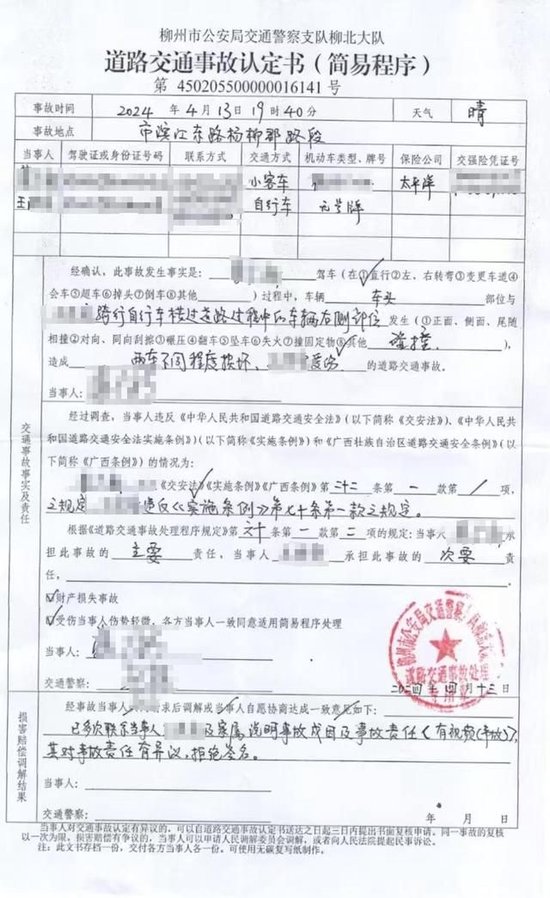 柳州市公安局交通警察支队柳北大队
道路交通事故认定书（简易程序）
第 450205500000016141 号
事故时间 2024 年 4 月 13 日 19 时 40 分 天气 晴
事故地点 市滨江东路杨柳郡路段
当事人 驾驶证或身份证号码 联系方式 交通方式 机动车类型、牌号 保险公司 交强险凭证号
小客车 太平洋
王 自行车 无号牌
经确认，此事故发生事实是： 驾车（在①直行②左、右转弯③变更车道④
会车⑤超车⑥掉头⑦倒车⑧其他 ）过程中，车辆 车头 部位与
骑行自行车横过道路过程中的车辆右侧部位 发生（①正面、侧面、尾随
相撞②对向、同向刮擦③碾压④翻车⑤坠车⑥失火⑦撞固定物⑧其他 碰撞 ），
造成 两车不同程度损坏、 受伤 的道路交通事故。
当事人：
交通事故事实及责任
经过调查，当事人违反《中华人民共和国道路交通安全法》（以下简称《交安法》）、《中华人民共
和国道路交通安全法实施条例》（以下简称《实施条例》）和《广西壮族自治区道路交通安全条例》（以
下简称《广西条例》）的情况为：
《交安法》《实施条例》《广西条例》第 二十二 条第 一 款第 / 项，
之规定 违反《实施条例》第七十条第一款之规定。
根据《道路交通事故处理程序规定》第 六十 条第 一 款第 二 项的规定：当事人 承
担此事故的 主要 责任，当事人 承担此事故的 次要 责
任，
财产损失事故
受伤当事人伤势轻微，各方当事人一致同意适用简易程序处理
当事人：
交通警察： 二〇二四年四月十三日
柳州市公安局交通警察支队柳北大队
道路交通事故处理
专用章
损害赔偿调解结果
经事故当事人 请求后调解或当事人自愿协商达成一致意见如下：
已多次联系当事人 及家属说明事故成因及事故责任（有视频（事故）），
其对事故责任有异议，拒绝签名。
当事人：
交通警察： 年 月 日
当事人对交通事故认定有异议的，可以自道路交通事故认定书送达之日起三日内提出书面复核申请。同一事故的复核
以一次为限。损害赔偿有争议的，当事人可以申请人民调解委员会调解，或者向人民法院提起民事诉讼。
注：此文书存档一份，交付各方当事人各一份。可使用无碳复写纸制作。